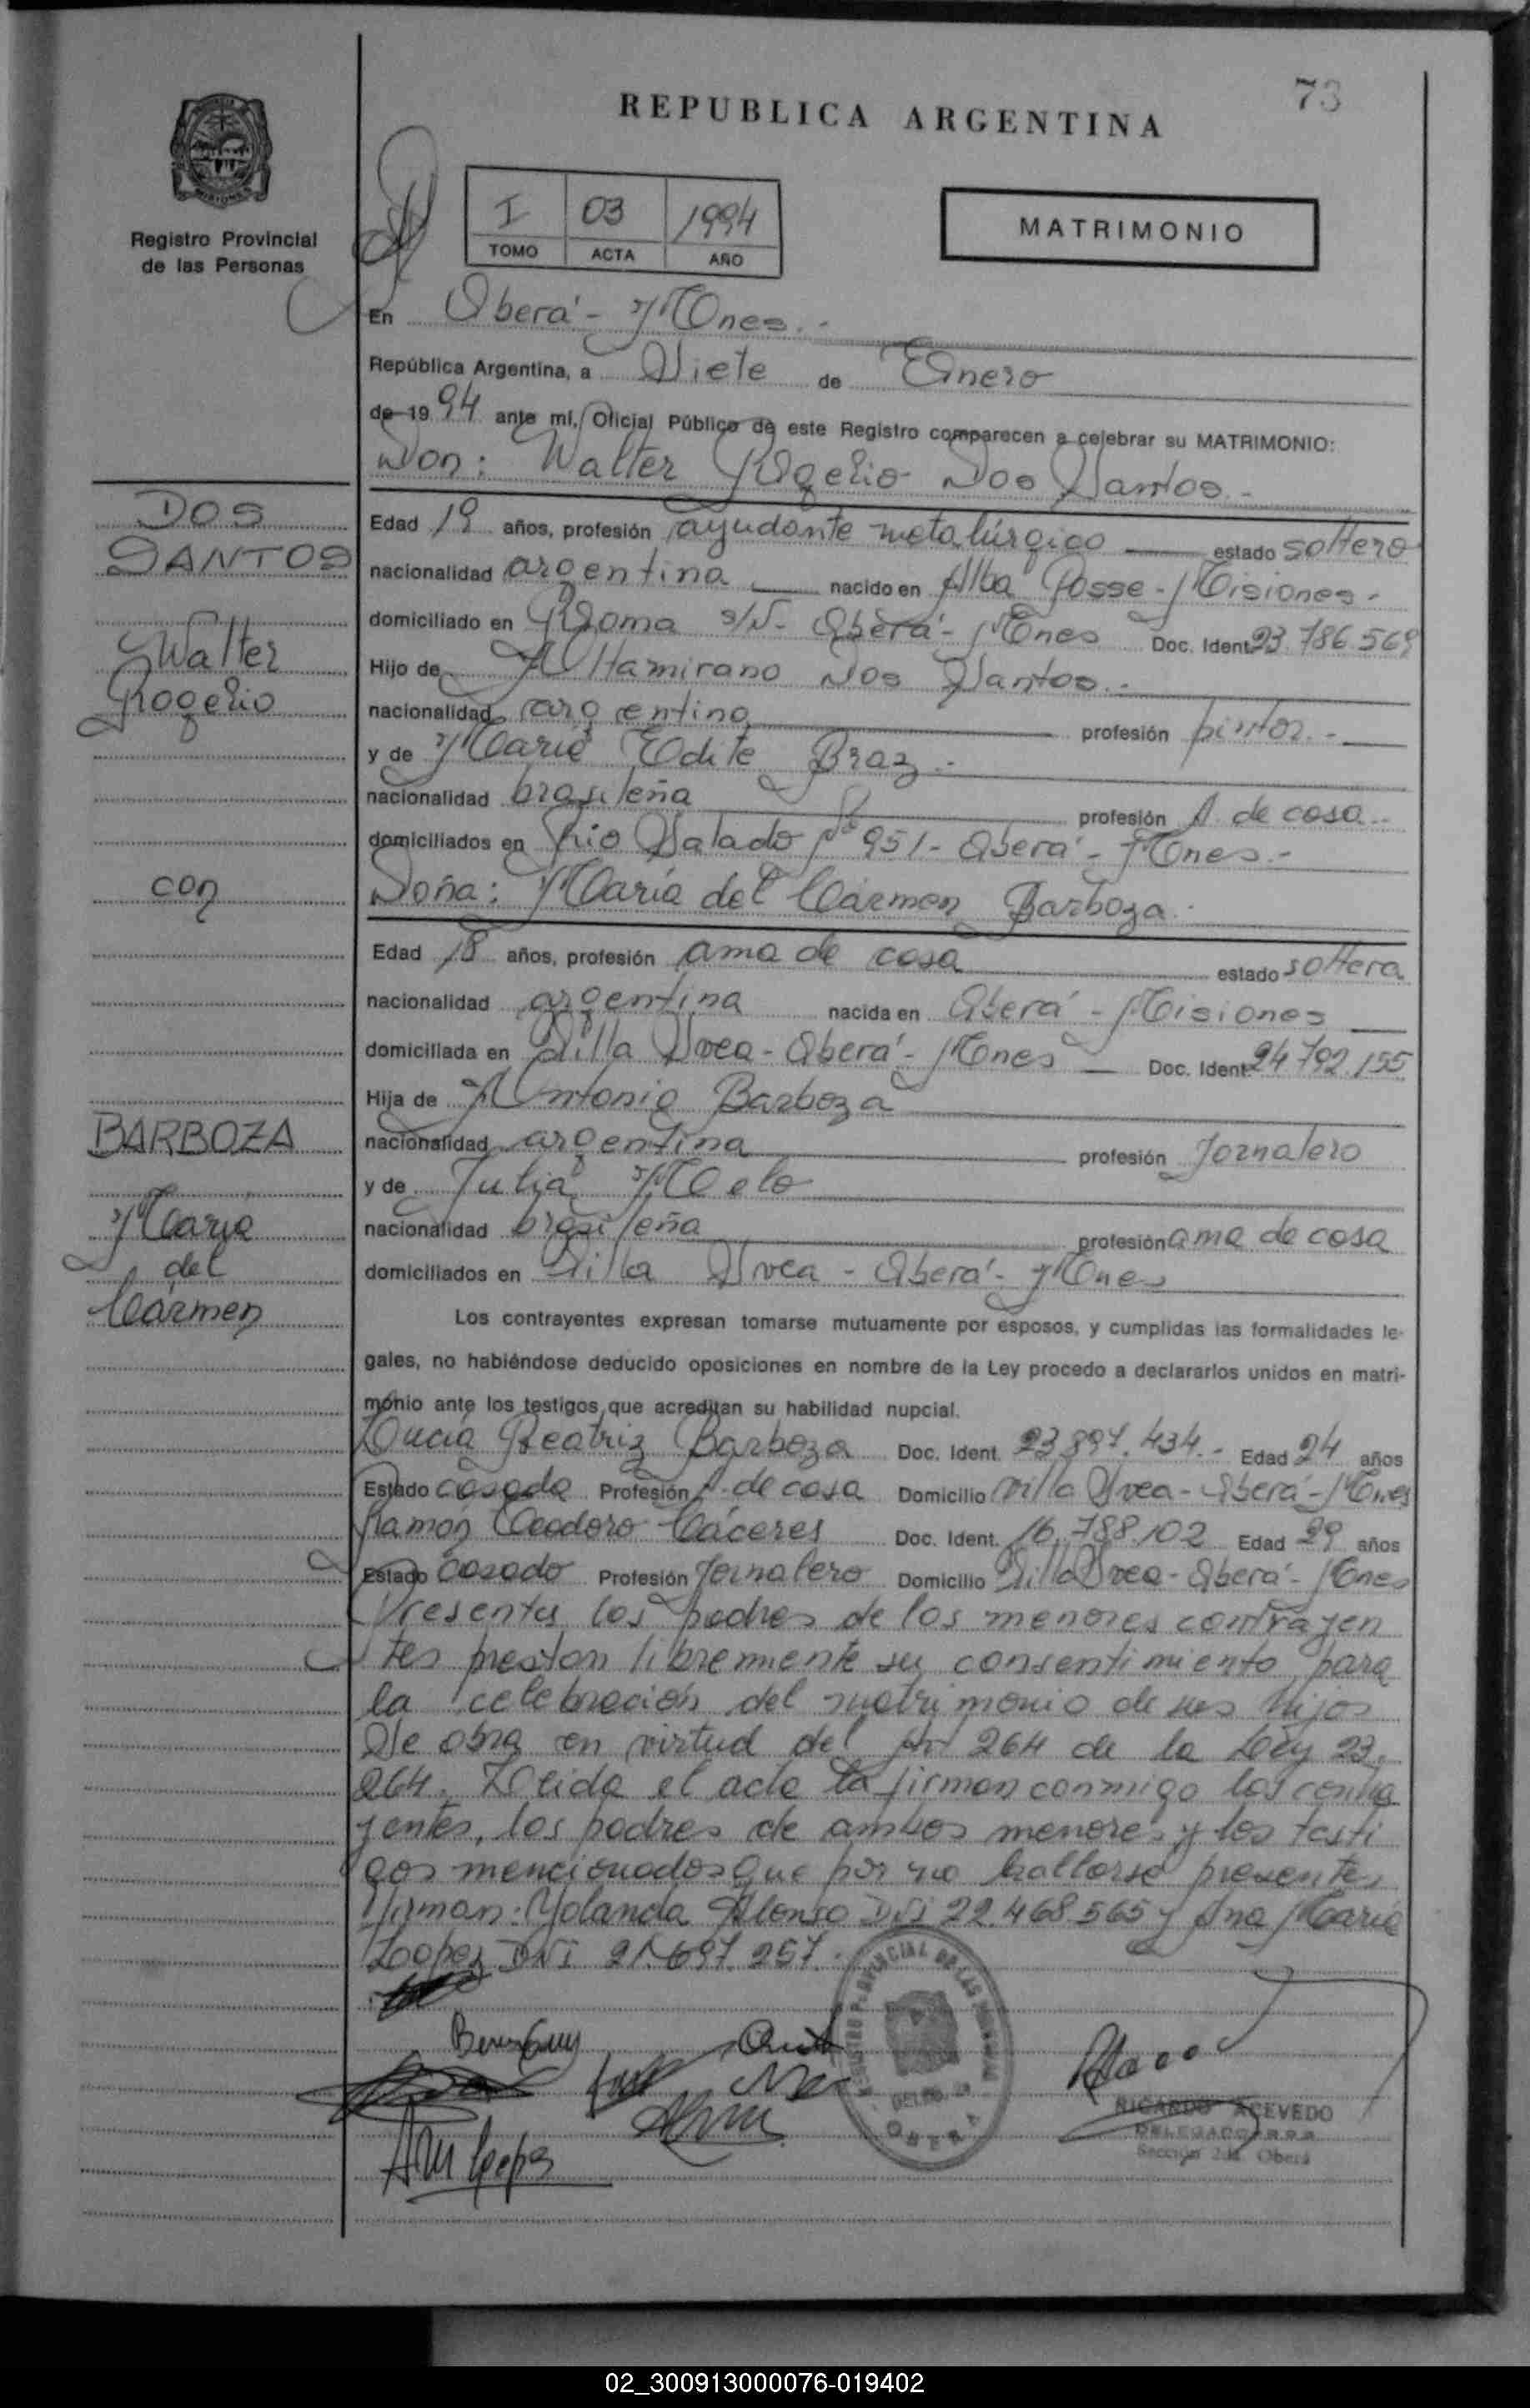 73
REPUBLICA ARGENTINA
Registro Provincial
de las Personas
I 03 1994
TOMO ACTA AÑO
MATRIMONIO
En Oberá - Mnes. -
República Argentina, a Siete de Enero
de 19 94 ante mí, Oficial Público de este Registro comparecen a celebrar su MATRIMONIO:
Don: Walter Rogelio Dos Santos -
DOS
SANTOS
Walter
Rogelio
con
BARBOZA
María
del
Cármen
Edad 19 años, profesión ayudante metalúrgico estado soltero
nacionalidad argentina nacido en Alba Posse - Misiones -
domiciliado en Roma s/N - Oberá - Mnes Doc. Ident. 23.786.569
Hijo de Altamirano Dos Santos. -
nacionalidad argentina profesión pintor. -
y de María Edite Braz. -
nacionalidad brasileña profesión A. de casa. -
domiciliados en Rio Salado Nº 951 - Oberá - Mnes. -
Doña: María del Cármen Barboza.
Edad 18 años, profesión ama de casa estado soltera
nacionalidad argentina nacida en Oberá - Misiones
domiciliada en Villa Svea - Oberá - Mnes Doc. Ident. 24.792.155
Hija de Antonio Barboza
nacionalidad argentina profesión Jornalero
y de Julia Melo
nacionalidad brasileña profesión ama de casa
domiciliados en Villa Svea - Oberá - Mnes
Los contrayentes expresan tomarse mutuamente por esposos, y cumplidas las formalidades le-
gales, no habiéndose deducido oposiciones en nombre de la Ley procedo a declararlos unidos en matri-
monio ante los testigos que acreditan su habilidad nupcial.
Lucía Beatriz Barboza Doc. Ident. 23.897.434. - Edad 24 años
Estado casada Profesión A. de casa Domicilio Villa Svea - Oberá - Mnes
Ramon Teodoro Cáceres Doc. Ident. 16.788.102 Edad 29 años
Estado casado Profesión Jornalero Domicilio Villa Svea - Oberá - Mnes
Presentes los padres de los menores contrayen
tes prestan libremente su consentimiento para
la celebración del matrimonio de sus hijos
Se obra en virtud del Art 264 de la Ley 23.
264. Leida el acta la firman conmigo los contra
yentes, los padres de ambos menores y los testi
gos mencionados que por no hallarse presentes
firman: Yolanda Alonso DNI 22.468.565 y Ana María
Lopez DNI 21.697.257.
Ana Lopez
OBERA
RICARDO ACEVEDO
DELEGADO R.P.P.
Sección 2da. Oberá
02_300913000076-019402